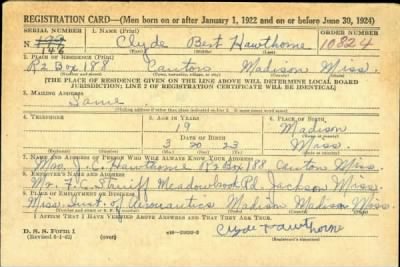 REGISTRATION CARD—(Men born on or after January 1, 1922 and on or before June 30, 1924)
SERIAL NUMBER 1. NAME (Print) ORDER NUMBER
N. 146 Clyde Best Hawthorne 10824
(First) (Middle) (Last)
2. PLACE OF RESIDENCE (Print)
R2 Box 188 Canton Madison Miss.
(Number and street) (Town, township, village, or city) (County) (State)
[THE PLACE OF RESIDENCE GIVEN ON THE LINE ABOVE WILL DETERMINE LOCAL BOARD
JURISDICTION; LINE 2 OF REGISTRATION CERTIFICATE WILL BE IDENTICAL]
3. MAILING ADDRESS
Same
4. TELEPHONE 5. AGE IN YEARS 6. PLACE OF BIRTH
19 Madison
DATE OF BIRTH
3 20 23 Miss.
(Mo.) (Day) (Yr.)
7. NAME AND ADDRESS OF PERSON WHO WILL ALWAYS KNOW YOUR ADDRESS
Mrs. J. C. Hawthorne R2 Box 188 Canton Miss.
8. EMPLOYER'S NAME AND ADDRESS
Mr. F. C. Meadowbrook Rd. Jackson Miss.
9. PLACE OF EMPLOYMENT OR BUSINESS
Miss. Inst. of Aeronautics Madison Madison Miss.
I AFFIRM THAT I HAVE VERIFIED ABOVE ANSWERS AND THAT THEY ARE TRUE.
D. S. S. Form 1
(Revised 6-1-42) (over) Clyde Hawthorne
(Registrant's signature)